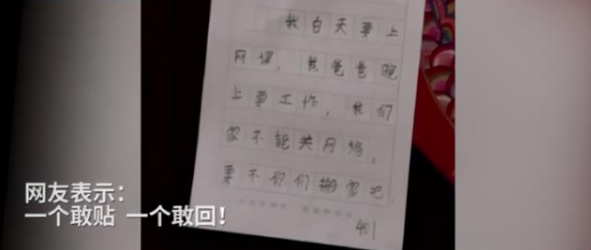 我白天要上
网课，我爸爸晚
上要工作，我们
家不能关网络，
要不你们搬家吧
401
网友表示：
一个敢贴 一个敢回！